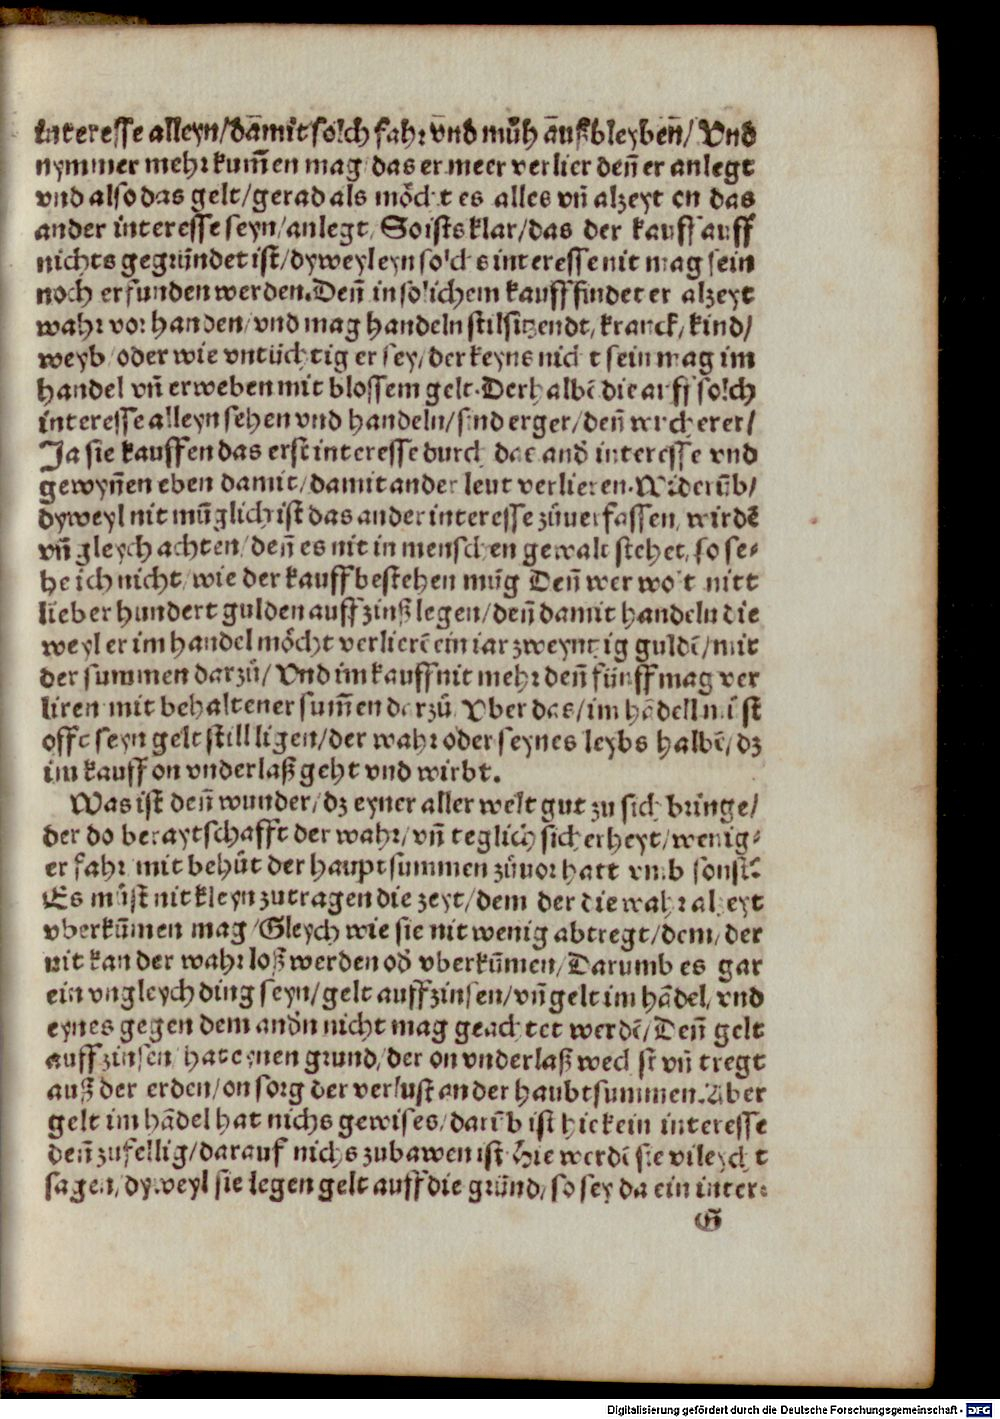 interesse alleyn/dāmit solch fahr vnd můh aussbleybeñ/ Vnd
nymmer mehr kum̃en mag/das er meer verlier deñ er anlegt
vnd also das gelt/gerad als möcht es alles vñ alzeyt on das
ander interesse seyn/anlegt/ So ists klar/das der kauff auff
nichts gegründet ist/dyweyl eyn solchs interesse nit mag sein
noch erfunden werden. Deñ in solichem kauff findet er alzeyt
wahr vorhanden/vnd mag handeln stilsitzendt/kranck/kind/
weyb/oder wie vntüchtig er sey/der keyns nicht sein mag im
handel vñ erweben mit blossem gelt. Derhalbē die auff solch
interesse alleyn sehen vnd handeln/sind erger/deñ wucherer/
Ja sie kauffen das erst interesse durch das and̄ interesse vnd
gewyñen eben damit/damit ander leut verlieren. Widerūb/
dyweyl nit müglich ist das ander interesse zůuerfassen/ wirdē
vñ gleych achten/deñ es nit in menschen gewalt stehet/so se⸗
he ich nicht/wie der kauff bestehen müg Deñ wer wolt nitt
lieber hundert gulden auff zinß legen/deñ damit handeln die
weyl er im handel möcht verlierē ein iar zweyntzig guldē/mit
der summen darzů/ Vnd im kauff nit mehr deñ fünff mag ver
liren mit behaltener sum̃en darzů/ Vber das/im hādell můst
offt seyn gelt still ligen/der wahr oder seynes leybs halbē/dz
im kauff on vnderlaß geht vnd wirbt.
Was ist deñ wunder/dz eyner aller welt gut zu sich bringe/
der do beraytschafft der wahr/vñ teglich sicherheyt/wenig⸗
er fahr/mit behůt der hauptsummen zůuor hatt vmb sonst?
Es můst nit kleyn zutragen die zeyt/dem der die wahr alzeyt
vberkūmen mag/Gleych wie sie nit wenig abtregt/dem/der
nit kan der wahr loß werden od̄ vberkūmen/Darumb es gar
ein vngleych ding seyn/gelt auff zinsen/vñ gelt im hādel/vnd
eynes gegen dem and̄n nicht mag geachtet werdē/Deñ gelt
auff zinsen/hat eynen grund/der on vnderlaß wechst vñ tregt
auß der erden/on sorg der verlust an der haubtsummen. Aber
gelt im hādel hat nichs gewises/darūb ist hie kein interesse
deñ zufellig/darauf nichs zubawen ist Hie werdē sie vileycht
sagen/dyweyl sie legen gelt auff die gründ/so sey da ein inter⸗
G
Digitalisierung gefördert durch die Deutsche Forschungsgemeinschaft - DFG